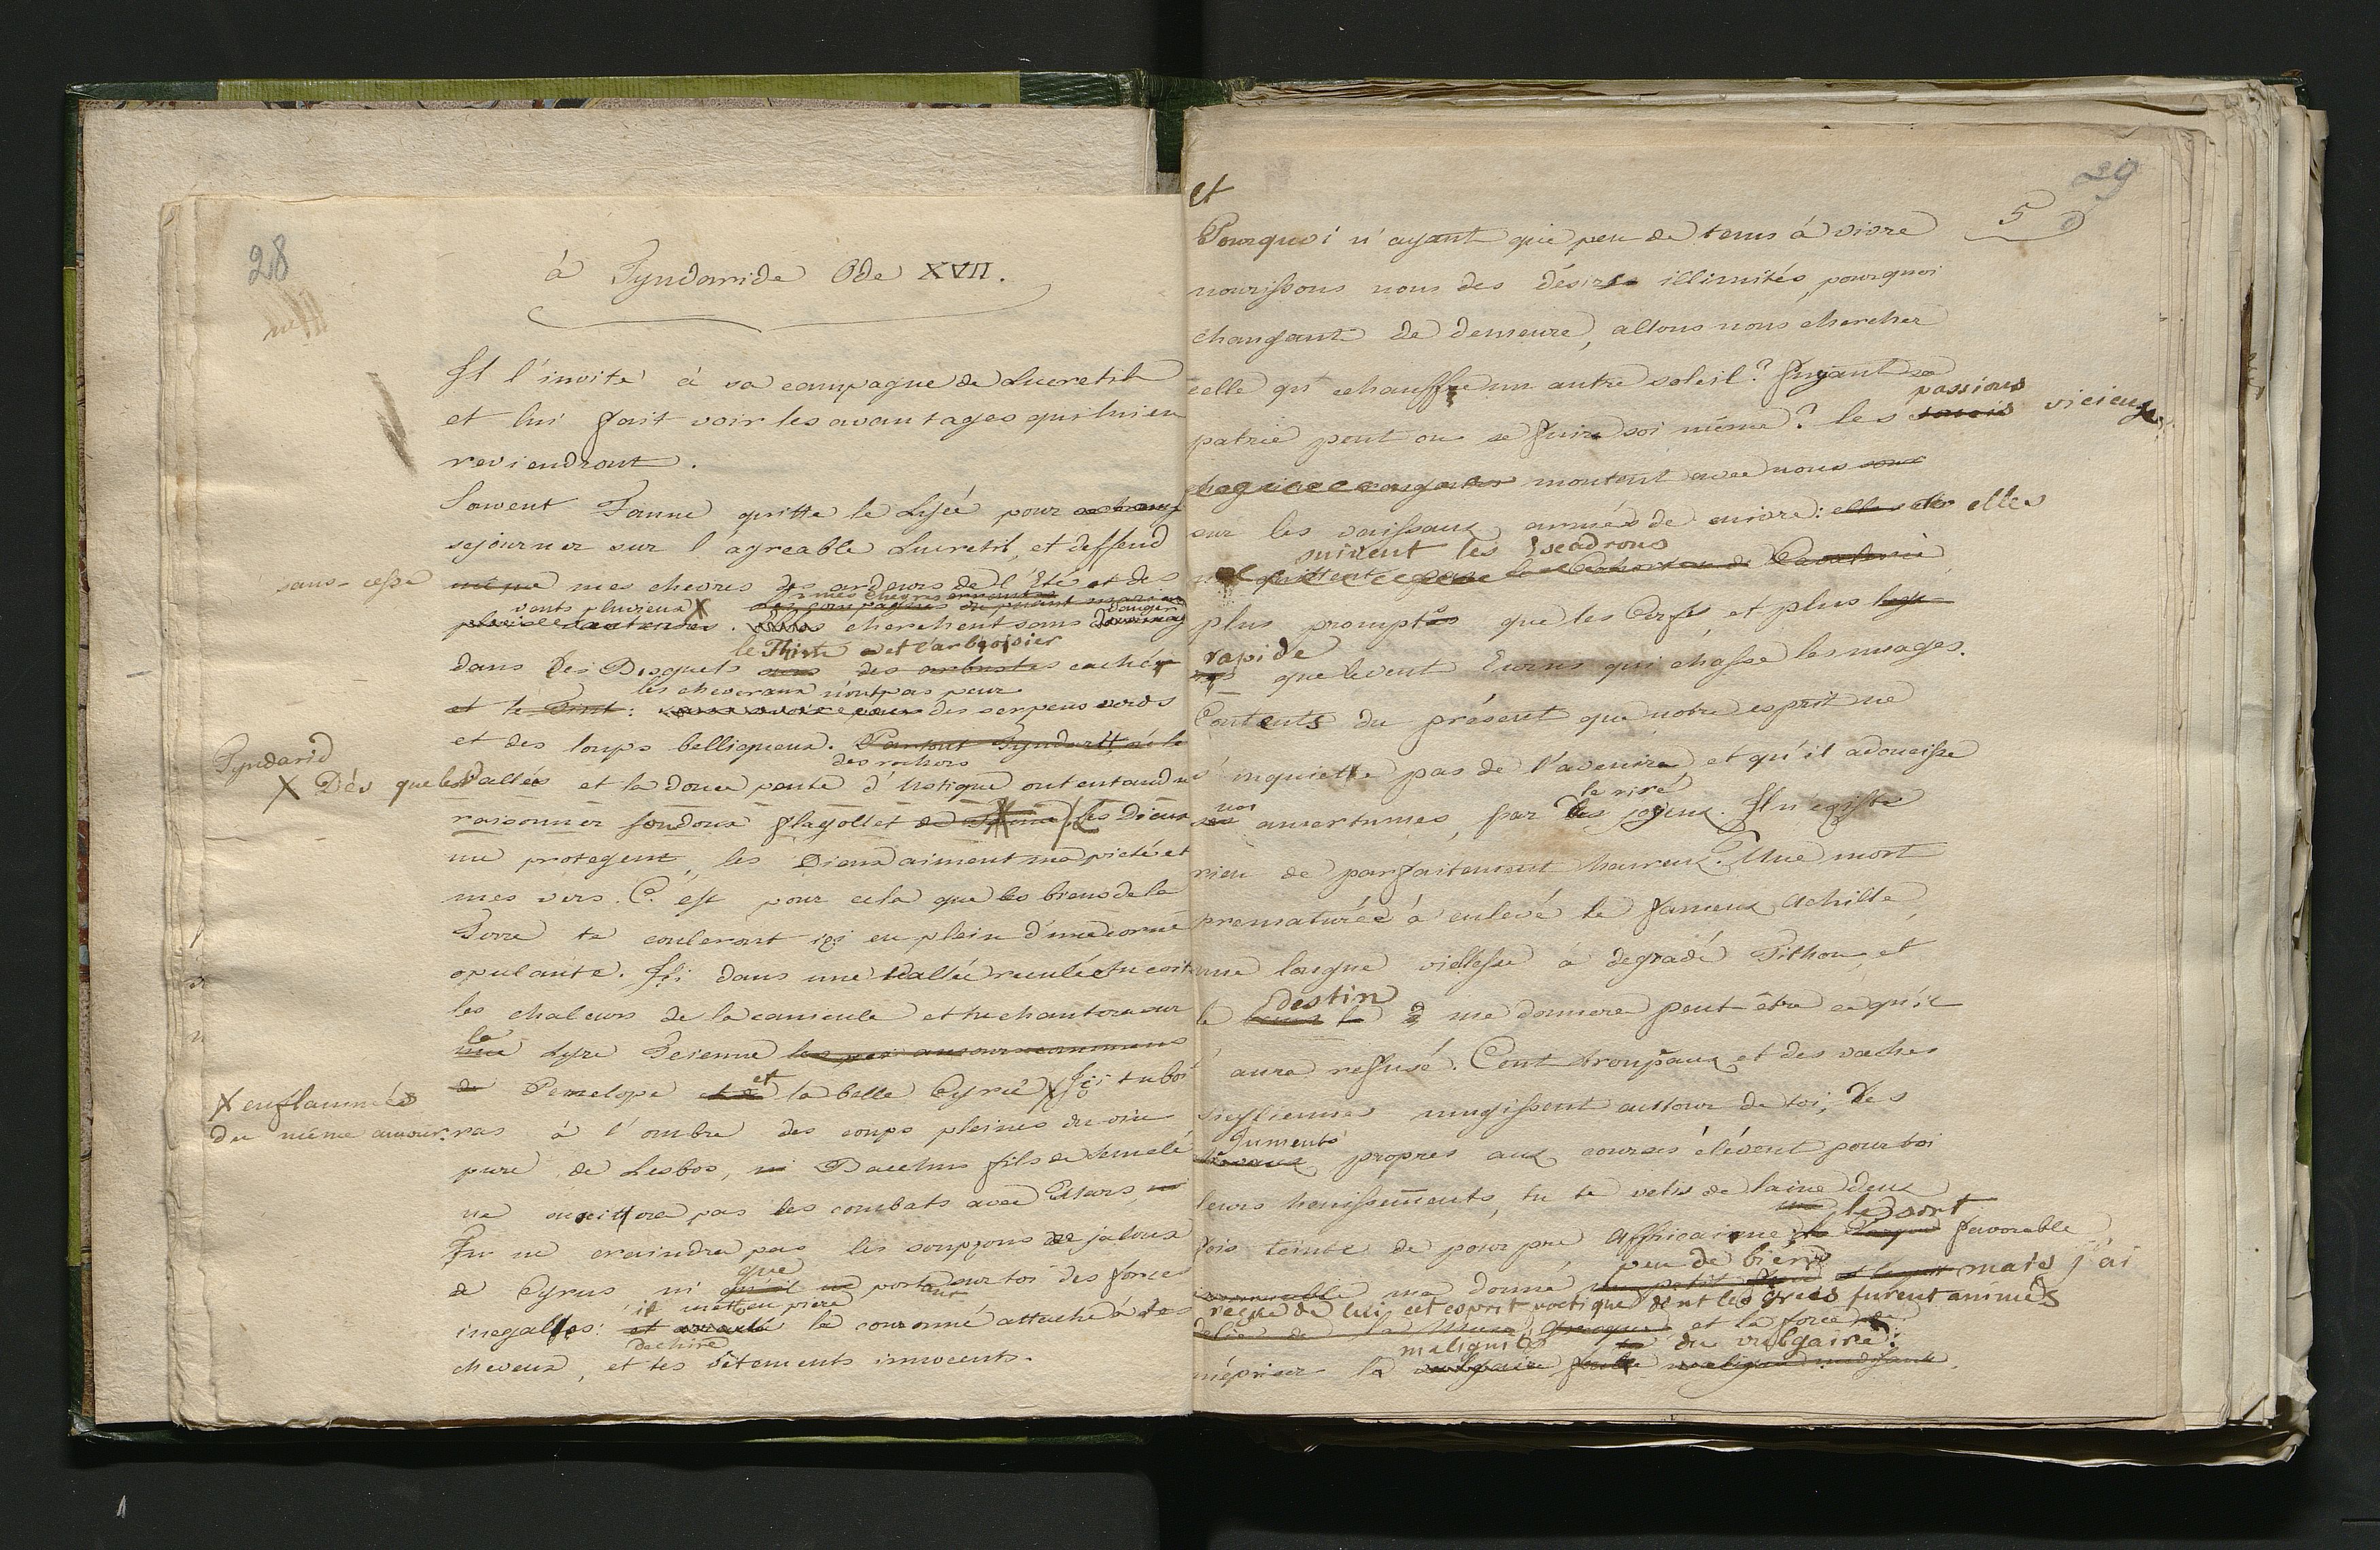 28
à Tyndaride Ode XVII.
Il l'invite à sa campagne de Lucretile
et lui fait voir les avantages qui lui en
reviendront.
Souvent Faune quitte le Lycée pour
sejourner sur l'agreable Lucretil, et deffend
sans-cesse même mes chevres des ardeurs de l'Eté et des
vents pluvieux X mes chevres errantes
cherchent sans danger
le Thim et l'arboisier
dans des Bosquets des arbustes cachés
les chevraux n'ont pas peur
et le Tim: des serpens verds
et des loups belliqueux. Partout
Tyndarid
des rochers
X Dés que les Vallées et la douce pente d'Ustique ont entandu
raisonner son doux flagollet de Faune Les Dieux
me protegent, les Dieux aiment ma pieté et
mes vers. C'est pour cela que les biens de la
Terre te couleront ici en plein d'une corne
opulante. Ici dans une Vallée reculée tu evit
les chaleurs de la canicule et tu chantera sur
la
une Lyre Teienne
de Penelope et la belle Cyrcé X Ici tu boi
X enflammées
du même amour.
ras à l'ombre des coups pleines du vin
pure de Lesbos, ni Bacchus fils de Semelé
ne melera pas les combats avec Mars, ni
Tu ne craindra pas les soupçons de jaloux
de Cyrus ni que portant sur toi des forces
inegalles: il mett en piece la couronne attaché à tes
dechire
cheveux, et tes vêtements innocents.
29
5
et
Pourquoi n'ayant que peu de tems à vivre
nourissons nous des désirs illimités, pourquoi
changeant de demeure, allons nous chercher
celle qu'echauffe un autre soleil? fuyant sa
passions
patrie peut on se fuire soi même? les soucis vicieux
montent avec nous
sur les vaissaux armés de cuivre: elles
suivent les Escadrons
quittent pas de Cavalerie
plus promptes que les Cerfs, et plus
rapide
que le vent Eurus qui chasse les nuages.
Contents du présent que notre esprit ne
s'inquiette pas de l'avenire, et qu'il adoucisse
nos le rire
amertumes, par joyeux. Il n'egiste
rien de parfaitement heureux. Une mort
prematurée à enlevé le fameux Achille,
une longue viellesse à degradé Tithon, et
destin
le me donnera peut-être ce qu'il
t'aura reffusé. Cent troupeaux et des vaches
siciliennes mugissent autour de toi, des
Juments
propres aux courses élévent pour toi
leurs henissements, tu te vetis de laine deux
le sort
fois teinte de pour pre Affricaine; favorable
peu de biens
me donné mais j'ai
reçue de lui cet esprit poetique dont les Grecs furent animés
Muse Grecque et la force de
malignité du vulgaire:
mépriser la